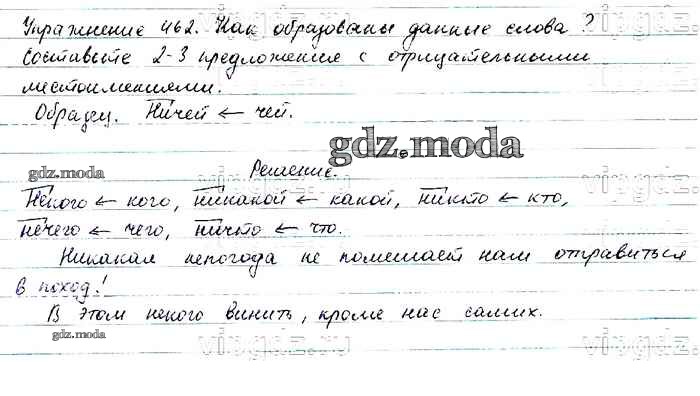 Упражнение 462. Как образованы данные слова?
Составьте 2-3 предложения с отрицательными
местоимениями.
Образец. Ничей ← чей.
gdz.moda
gdz.moda
Решение.
Некого ← кого, никакой ← какой, никто ← кто,
нечего ← чего, ничто ← что.
Никакая непогода не помешает нам отправиться
в поход!
В этом некого винить, кроме нас самих.
gdz.moda
vipgdz.ru